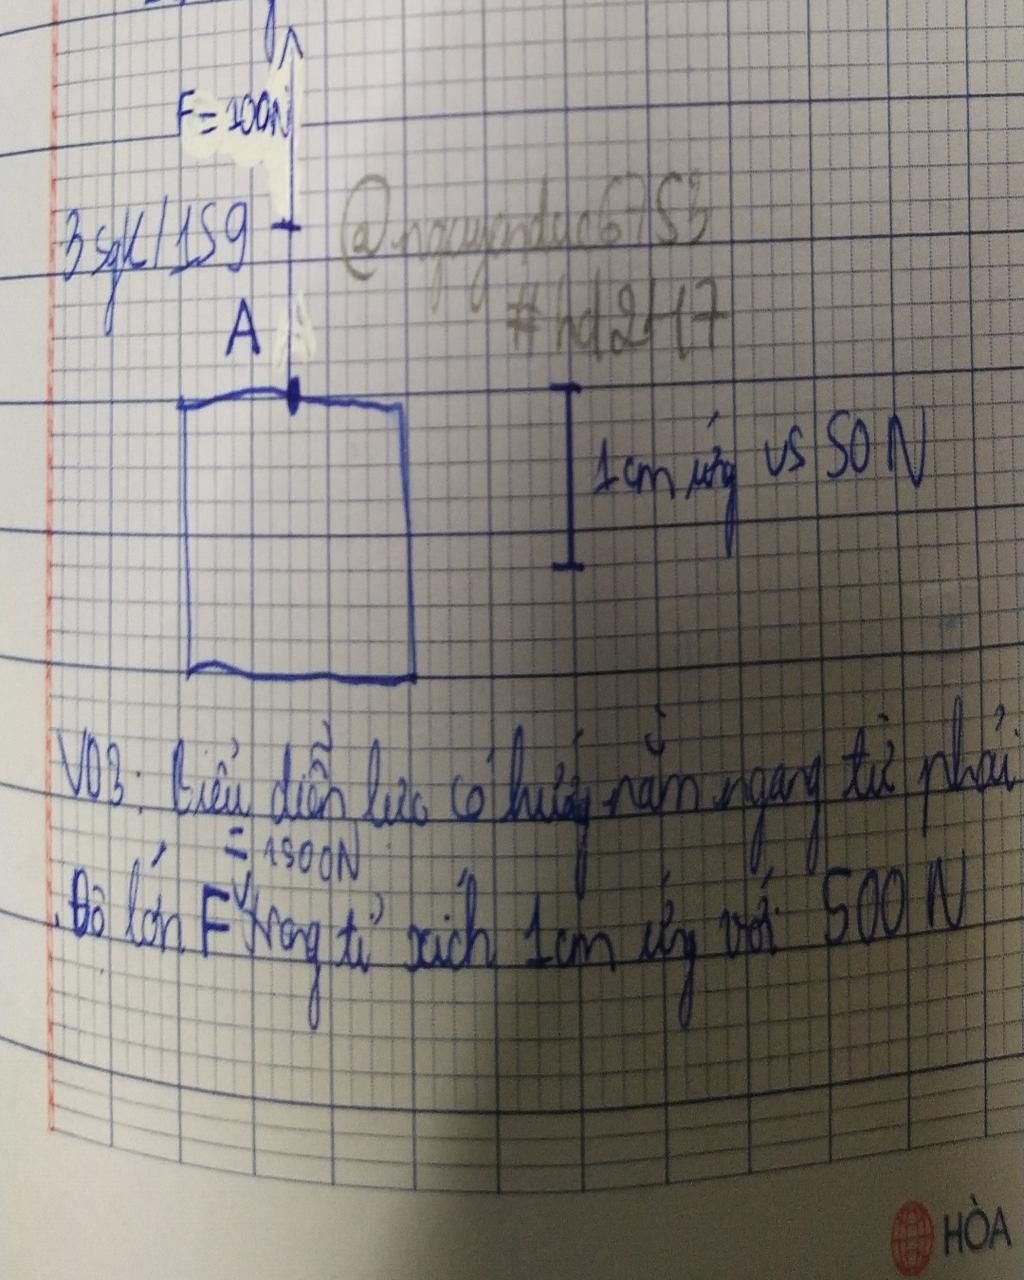 F = 100N
3 sgk/159
@nguyenduc6753
#hd2H7
A
1cm ứng vs 50 N
VD3: biểu diễn lực có hướng nằm ngang từ phải
= 1500N
Độ lớn F trong tỉ xích 1cm ứng với 500 N
HÒA